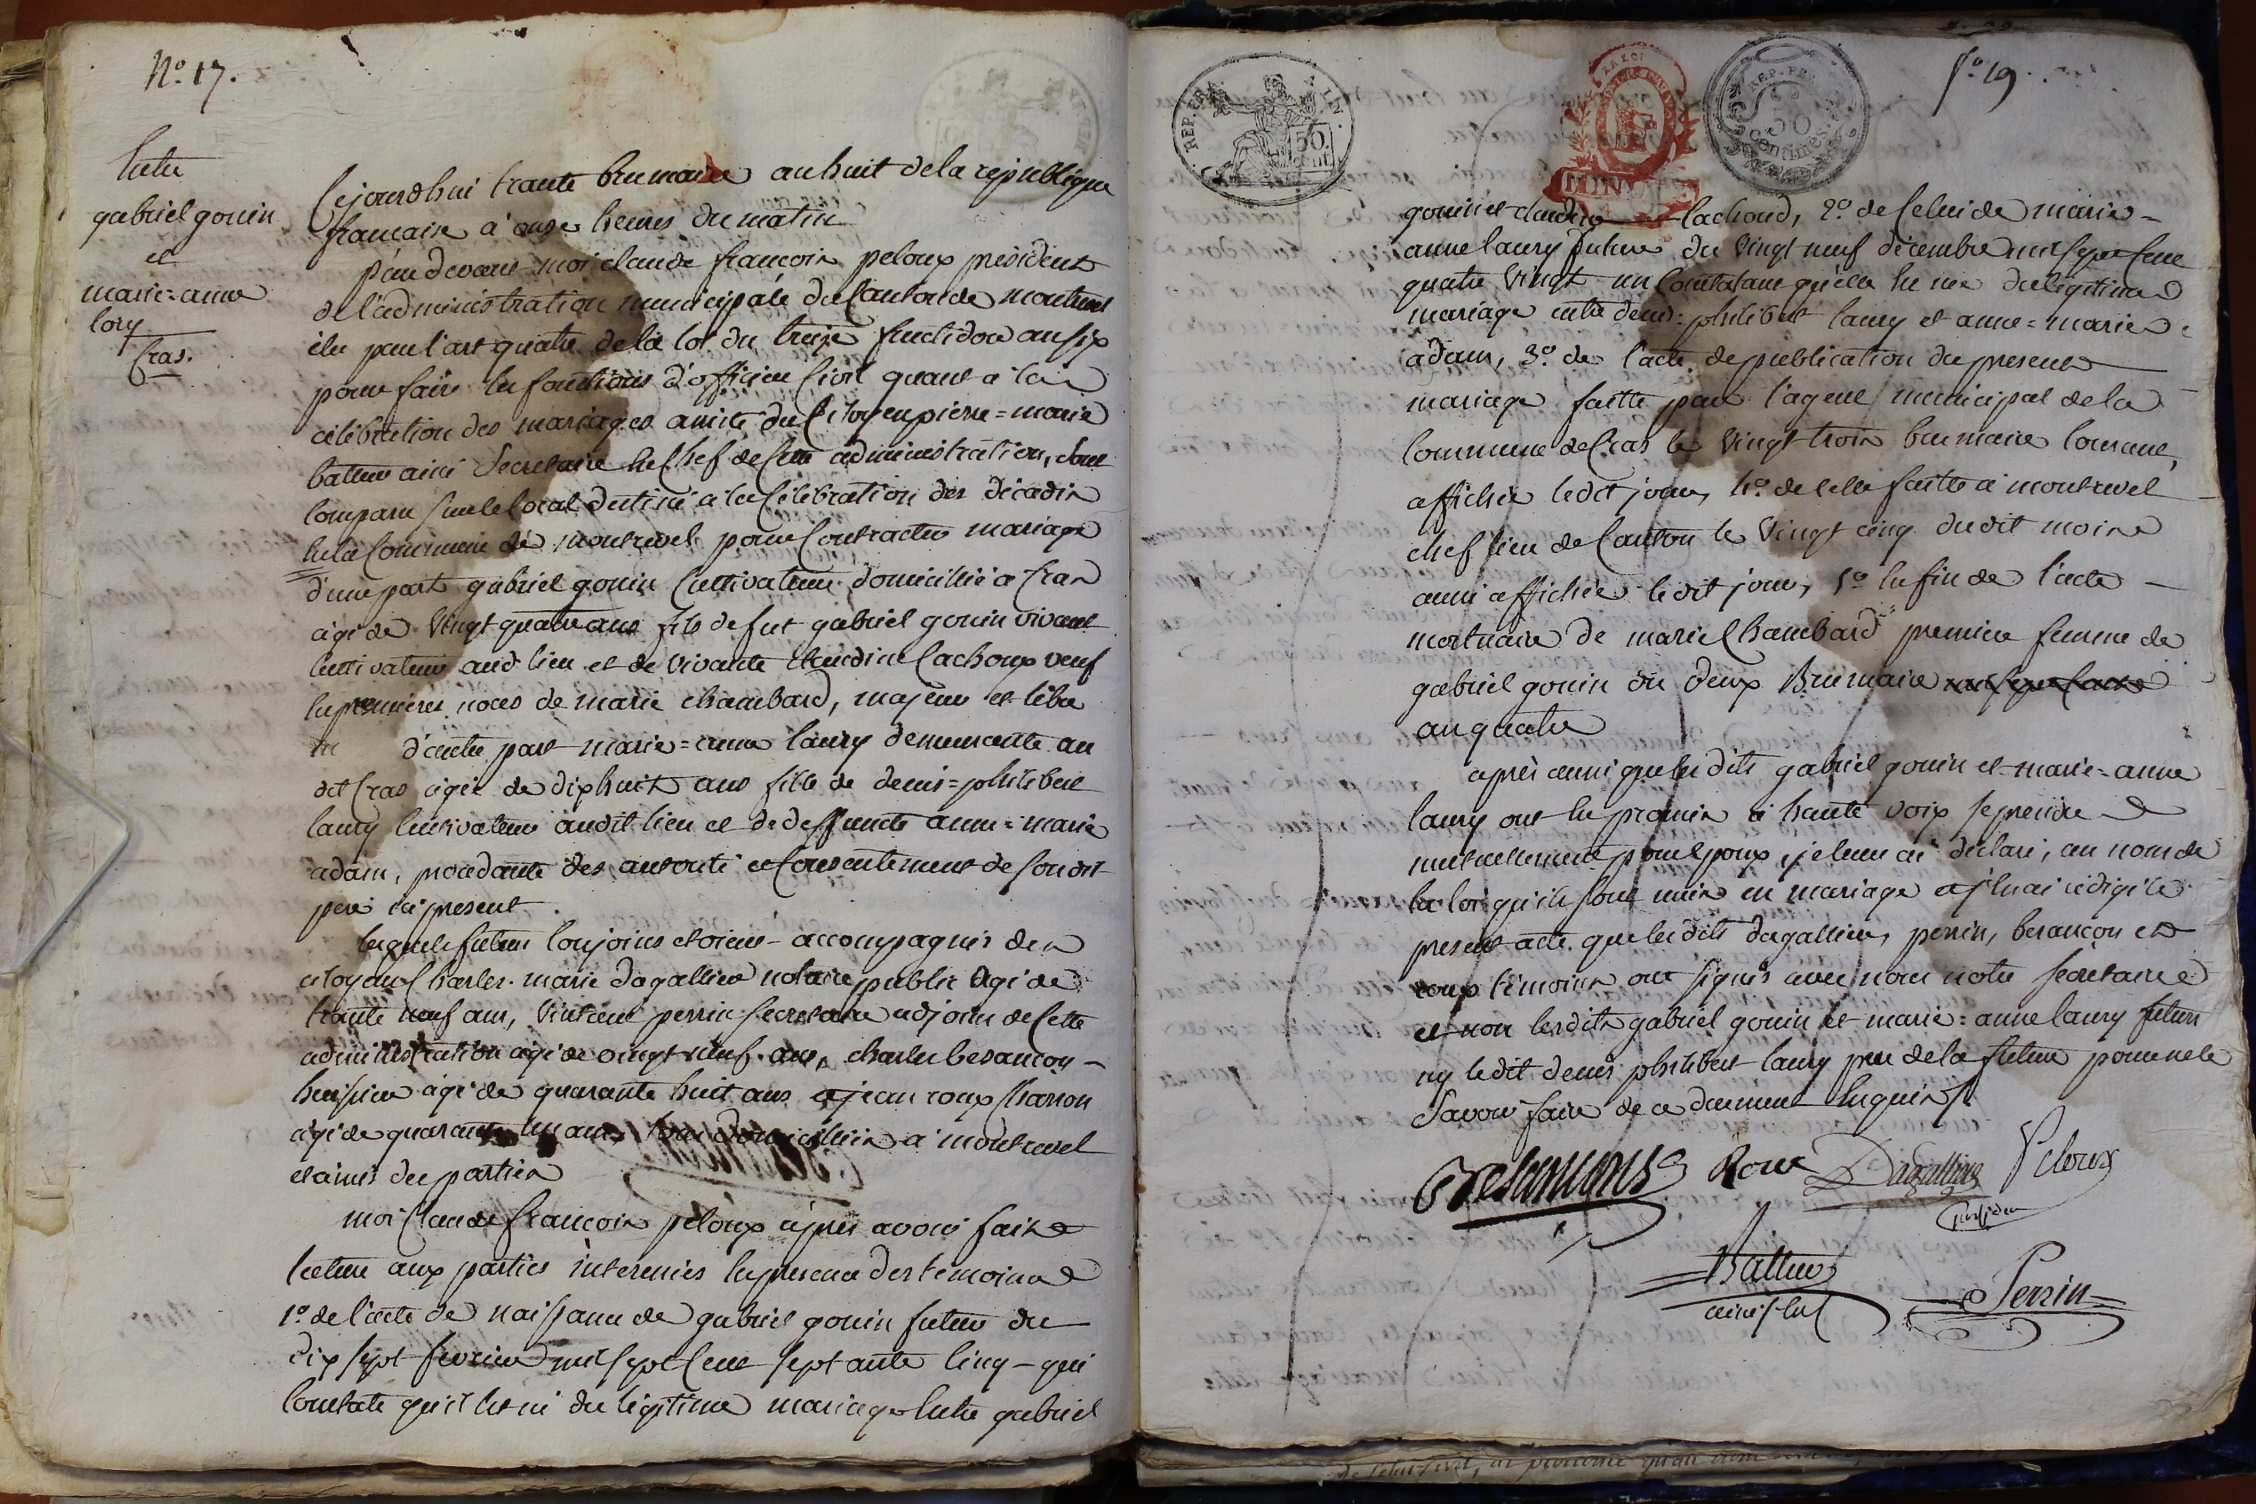 N.o 17.
Entre
gabriel gouin
et
marie=anne
lory
Cras.
Cejourdhui trante brumaire an huit de la république
francaise à onze heures du matin
pardevant moi claude francois peloux président
de l'administration municipale du Canton de montrevel
élu par l'art quatre de la loi du treize fructidor an six
pour faire les fonctions d'officier Civil quant a la
célébration des mariages assisté du Citoyen pierre=marie
battur ainé Secretaire En Chef de cette administration, Sont
Comparu sur le local destiné a la Célébration des décadis
En la Commune de montrevel pour Contracter mariage
d'une part gabriel gouin Cultivateur domicilié a Cras
agé de Vingt quatre ans fils de fut gabriel gouin vivant
Cultivateur aud lieu et de vivante Claudine Lachoux veuf
En premieres noces de marie chambard, majeur et libre
Et d'autre part marie=anne laury demeurante au
dit Cras agée de dix huit ans fille de denis=philibert
laury Cultivateur audit lieu et de deffuncte anne=marie
adam, procedante des autorité et Consentement de son dit
pere ici present.
Lesquels futurs Conjoints étoient accompagnés des
citoyens Charles marie dagallier notaire public agé de
trante neuf ans, perrin Secretaire adjoint de Cette
administration agé de vingt neuf ans, charles besançon
huissier agé de quarante huit ans et jean roux Charron
agé de quarante un ans, tous domiciliés a montrevel
et amis des parties
moi Claude francois peloux après avoir fait
lecture aux parties interessées En presence des témoins
1.o de l'acte de naissance de gabriel gouin futur du
dix sept fevrier mil sept Cent septante Cinq qui
Constate qu'il Est né du légitime mariage Entre gabriel
f.o 19
REP. FRA.
50. cent
LA LOI
REP. FRA.
50
Centimes
gouin et claudine Lachoud, 2.o de Celui de marie
anne laury future du vingt neuf décembre mil sept Cent
quatre vingt un Constatant qu'elle Est née du légitime
mariage entre denis=philibert laury et anne=marie
adam, 3.o de l'acte de publication du present
mariage faitte par l'agent municipal de la
Commune de Cras le Vingt trois brumaire Courant,
affichée ledit jour, 4.o de Celle faitte a montrevel
chef lieu de Canton le Vingt Cinq dudit mois
aussi affichée ledit jour, 5.o Enfin de l'acte
mortuaire de marie Chambard premiere femme de
gabriel gouin du deux Brumaire
an quatre
après aussi que lesdits gabriel gouin et marie=anne
laury ont Eu promis à haute voix se prendre
mutuellement pour Epoux, je leur ai déclaré, au nom de
la loi qu'ils sont unis en mariage et j'En ai rédigé le
present acte que lesdits dagallier, perrin, besançon et
roux témoins ont signés avec nous notre Secretaire
et non lesdits gabriel gouin et marie=anne laury futurs
ny ledit denis philibert laury pere de la future pour ne le
Savoir faire de ce duement Enquis
Besançons Roux Dagallier Peloux
president
Battur
ainé Perrin